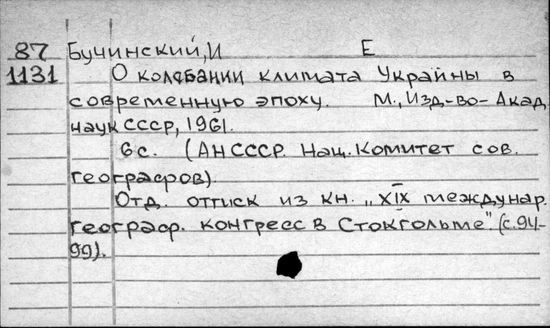 87 Бучинский, И Е
1131 О колебании климата Украйны в
современную эпоху. М., Изд-во-Акад
наук СССР, 1961.
6 с. (АН СССР. Нац. Комитет сов.
географов)
Отд. оттиск из кн. „XIX междунар.
географ. конгресс в Стокгольме" (с. 94-
99).